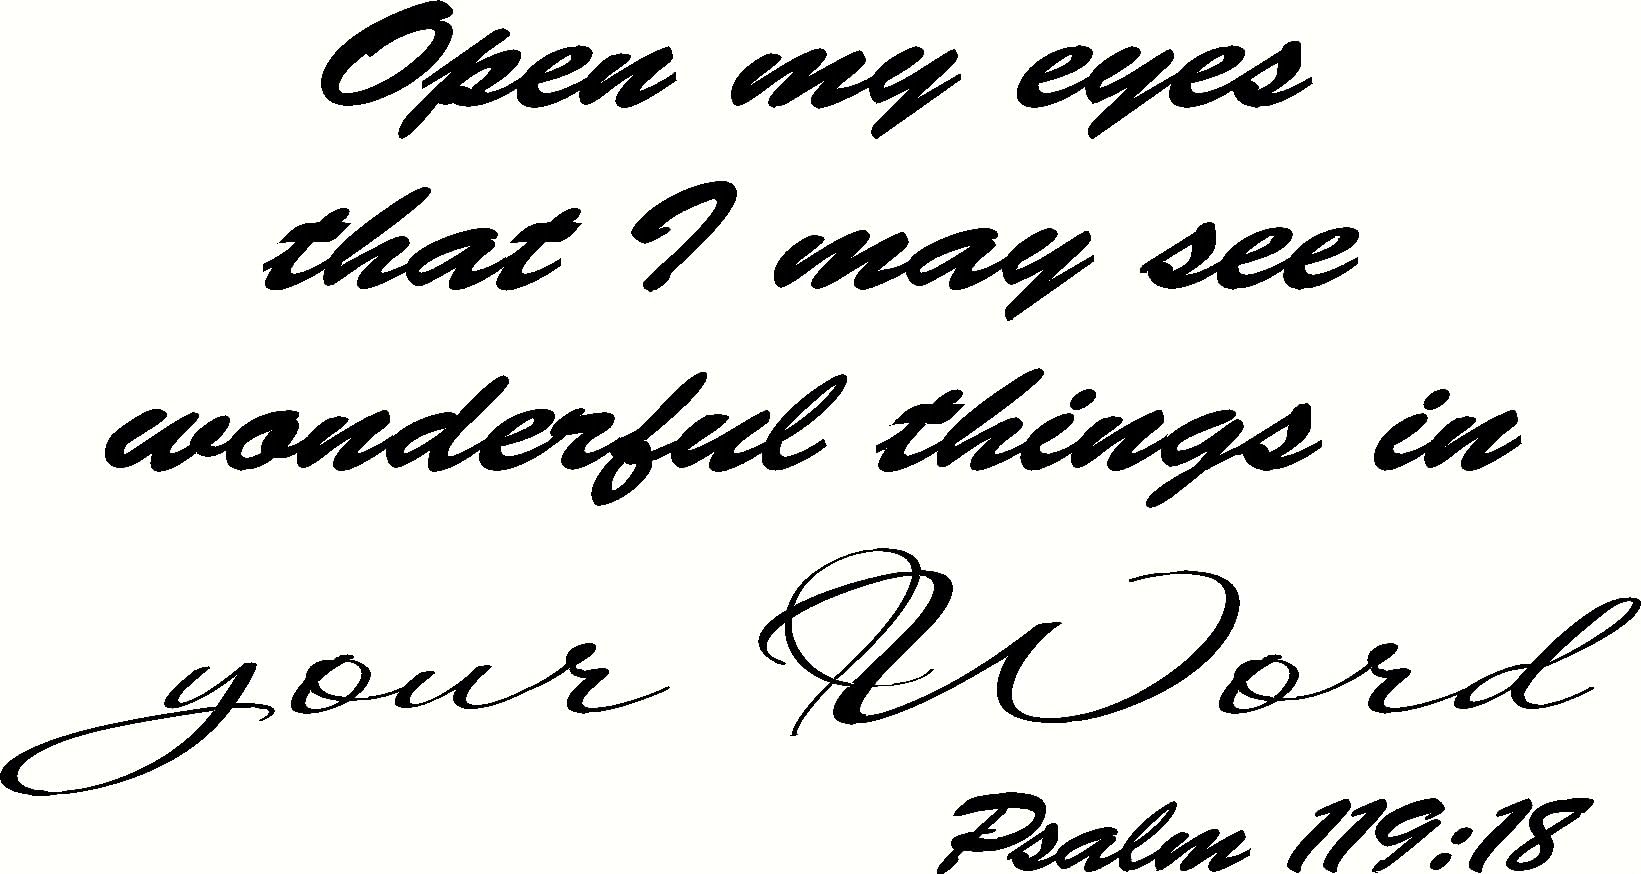 Open my eyes
that I may see
wonderful things in
your Word
Psalm 119:18